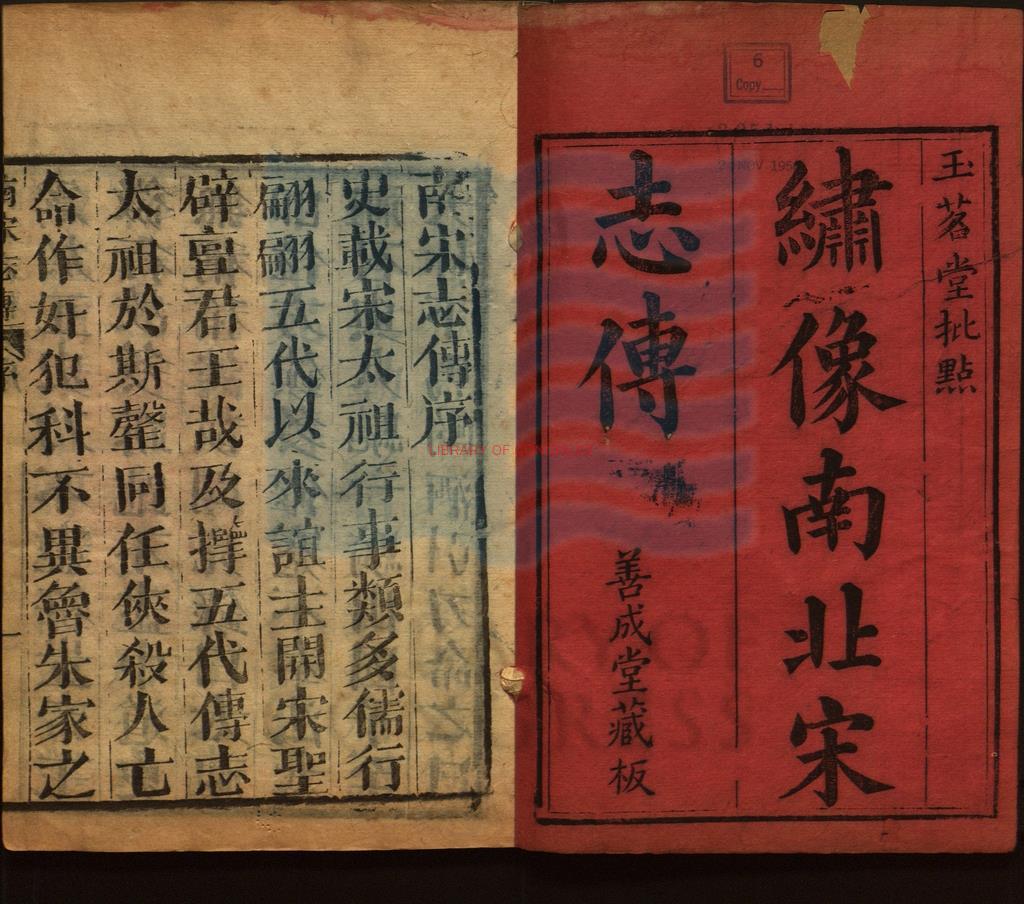 玉茗堂批點
繡像南北宋
志傳
善成堂藏板
6
Copy
NOV 195
LIBRARY OF CONGRESS
南宋志傳序
史載宋太祖行事類多儒行
翩翩五代以來誼主開宋聖
辟亶君王哉及撑五代傳志
太祖於斯鼛同任俠殺人亡
命作奸犯科不異魯朱家之
南宋志傳
序